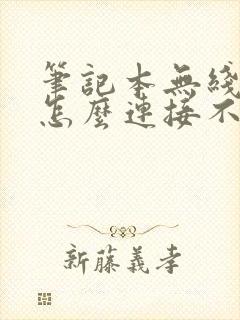 筆記本無綫
怎麼連接不
新藤義孝